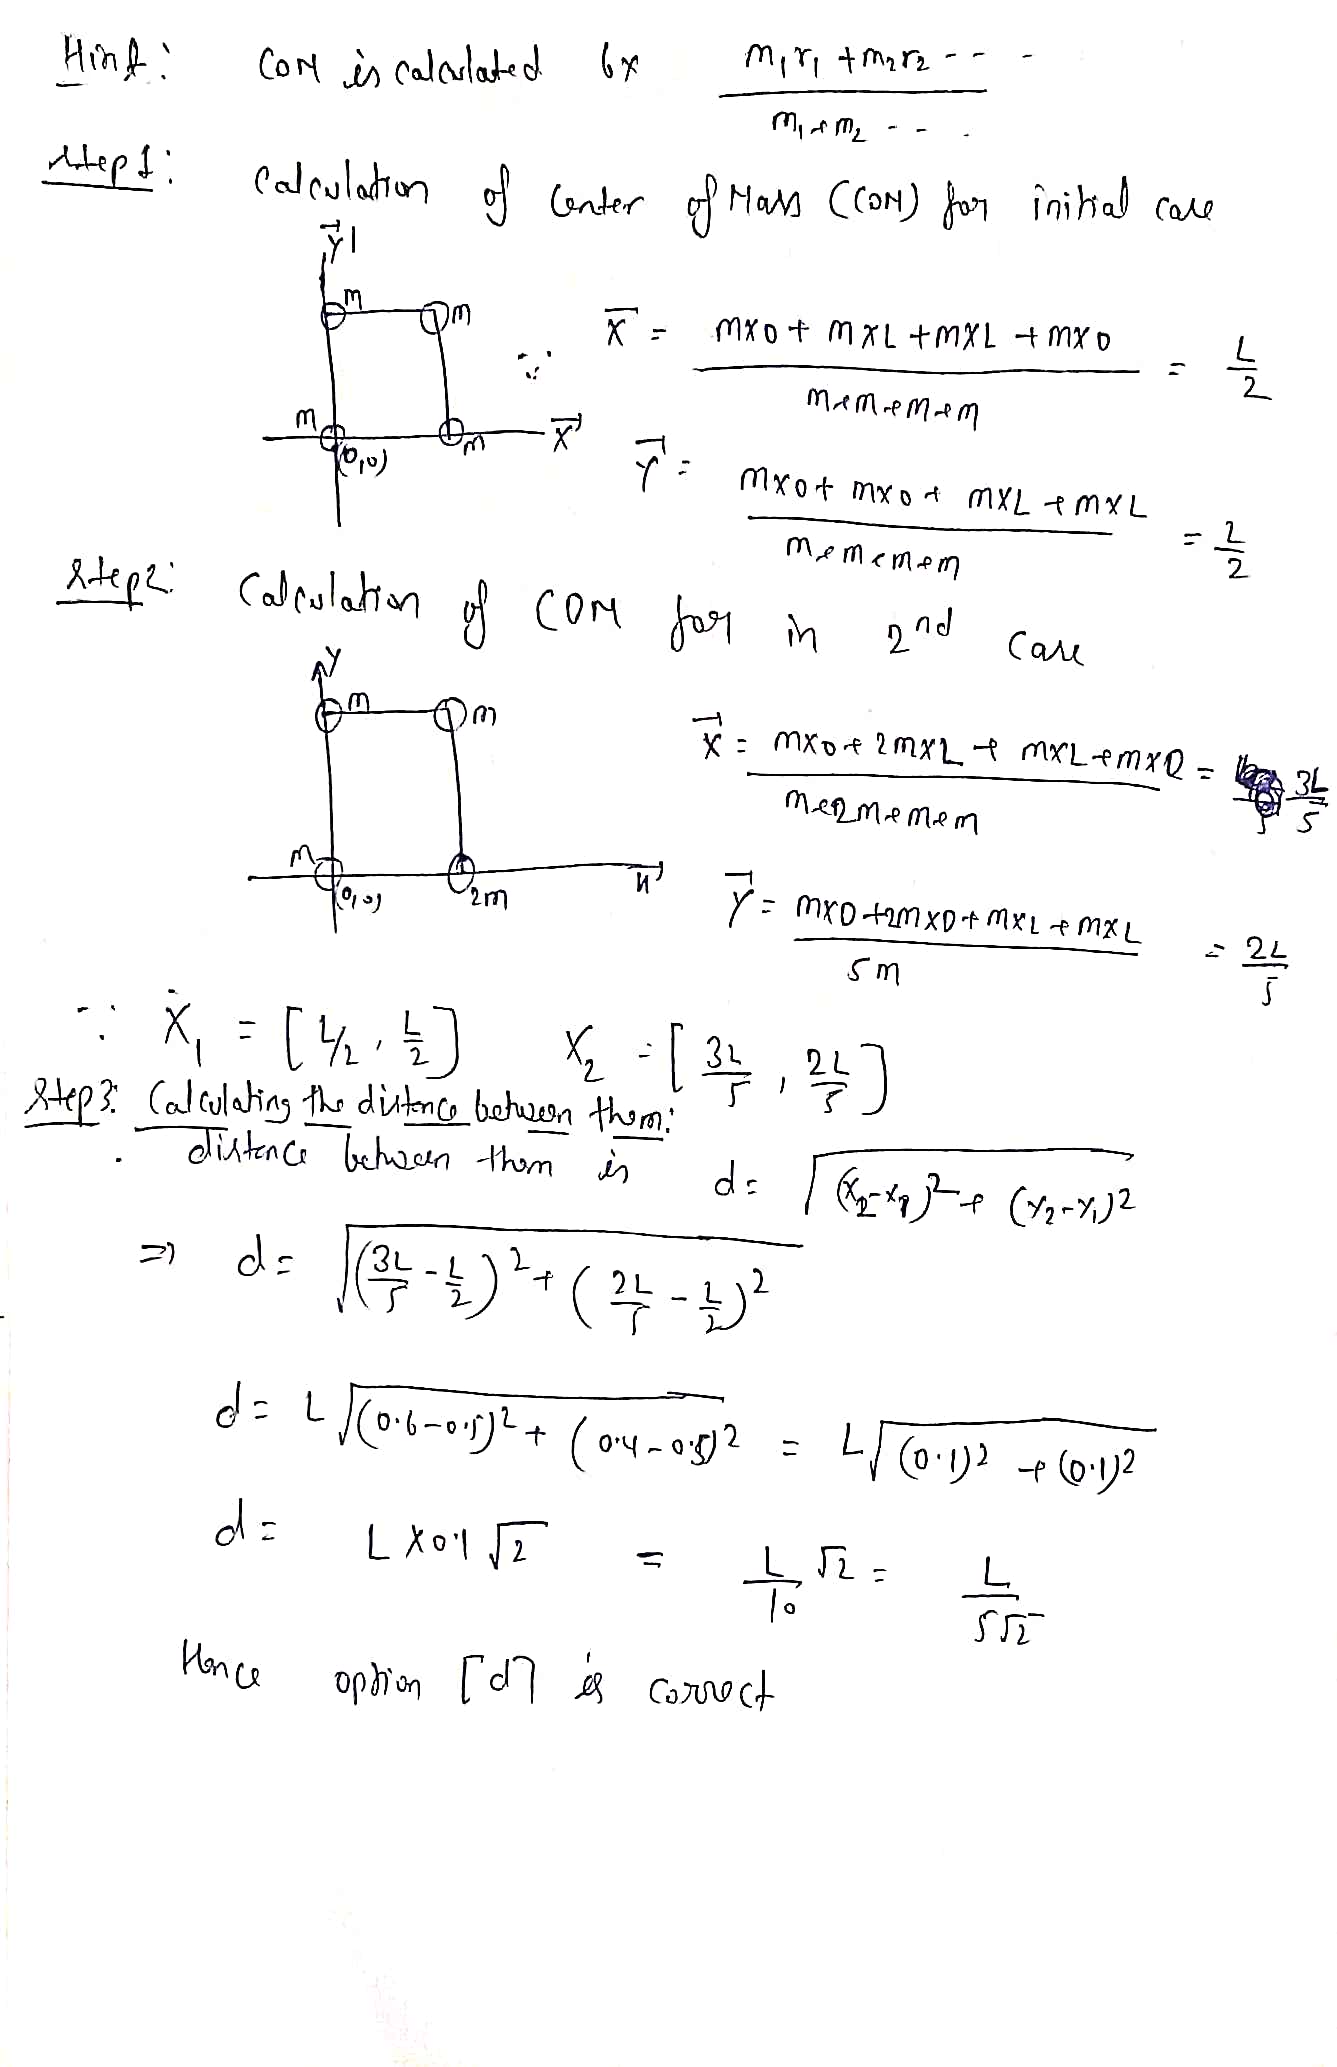 Hint: COM is calculated by m₁r₁ + m₂r₂ -- -
m₁ + m₂ -- -
Step1: Calculation of Center of Mass (COM) for initial case
Y
m m
X̄ = m×0 + m×L + m×L + m×0 = L/2
m+m+m+m
m (0,0) m X
Y = m×0 + m×0 + m×L + m×L = L/2
m+m+m+m
Step2: Calculation of COM for in 2nd Case
Y
m m
X = m×0 + 2m×L + m×L + m×0 = 3L/5
m+2m+m+m
m (0,0) 2m
Y = m×0 + 2m×0 + m×L + m×L = 2L/5
5m
∵ X₁ = [L/2, L/2] X₂ = [3L/5, 2L/5]
Step3: Calculating the distance between them:
distance between them is d = √(x₂-x₁)² + (y₂-y₁)²
⇒ d = √(3L/5 - L/2)² + (2L/5 - L/2)²
d = L √(0.6-0.5)² + (0.4-0.5)² = L√(0.1)² + (0.1)²
d = L × 0.1 √2 = L/10 √2 = L/5√2
Hence option [d] is correct